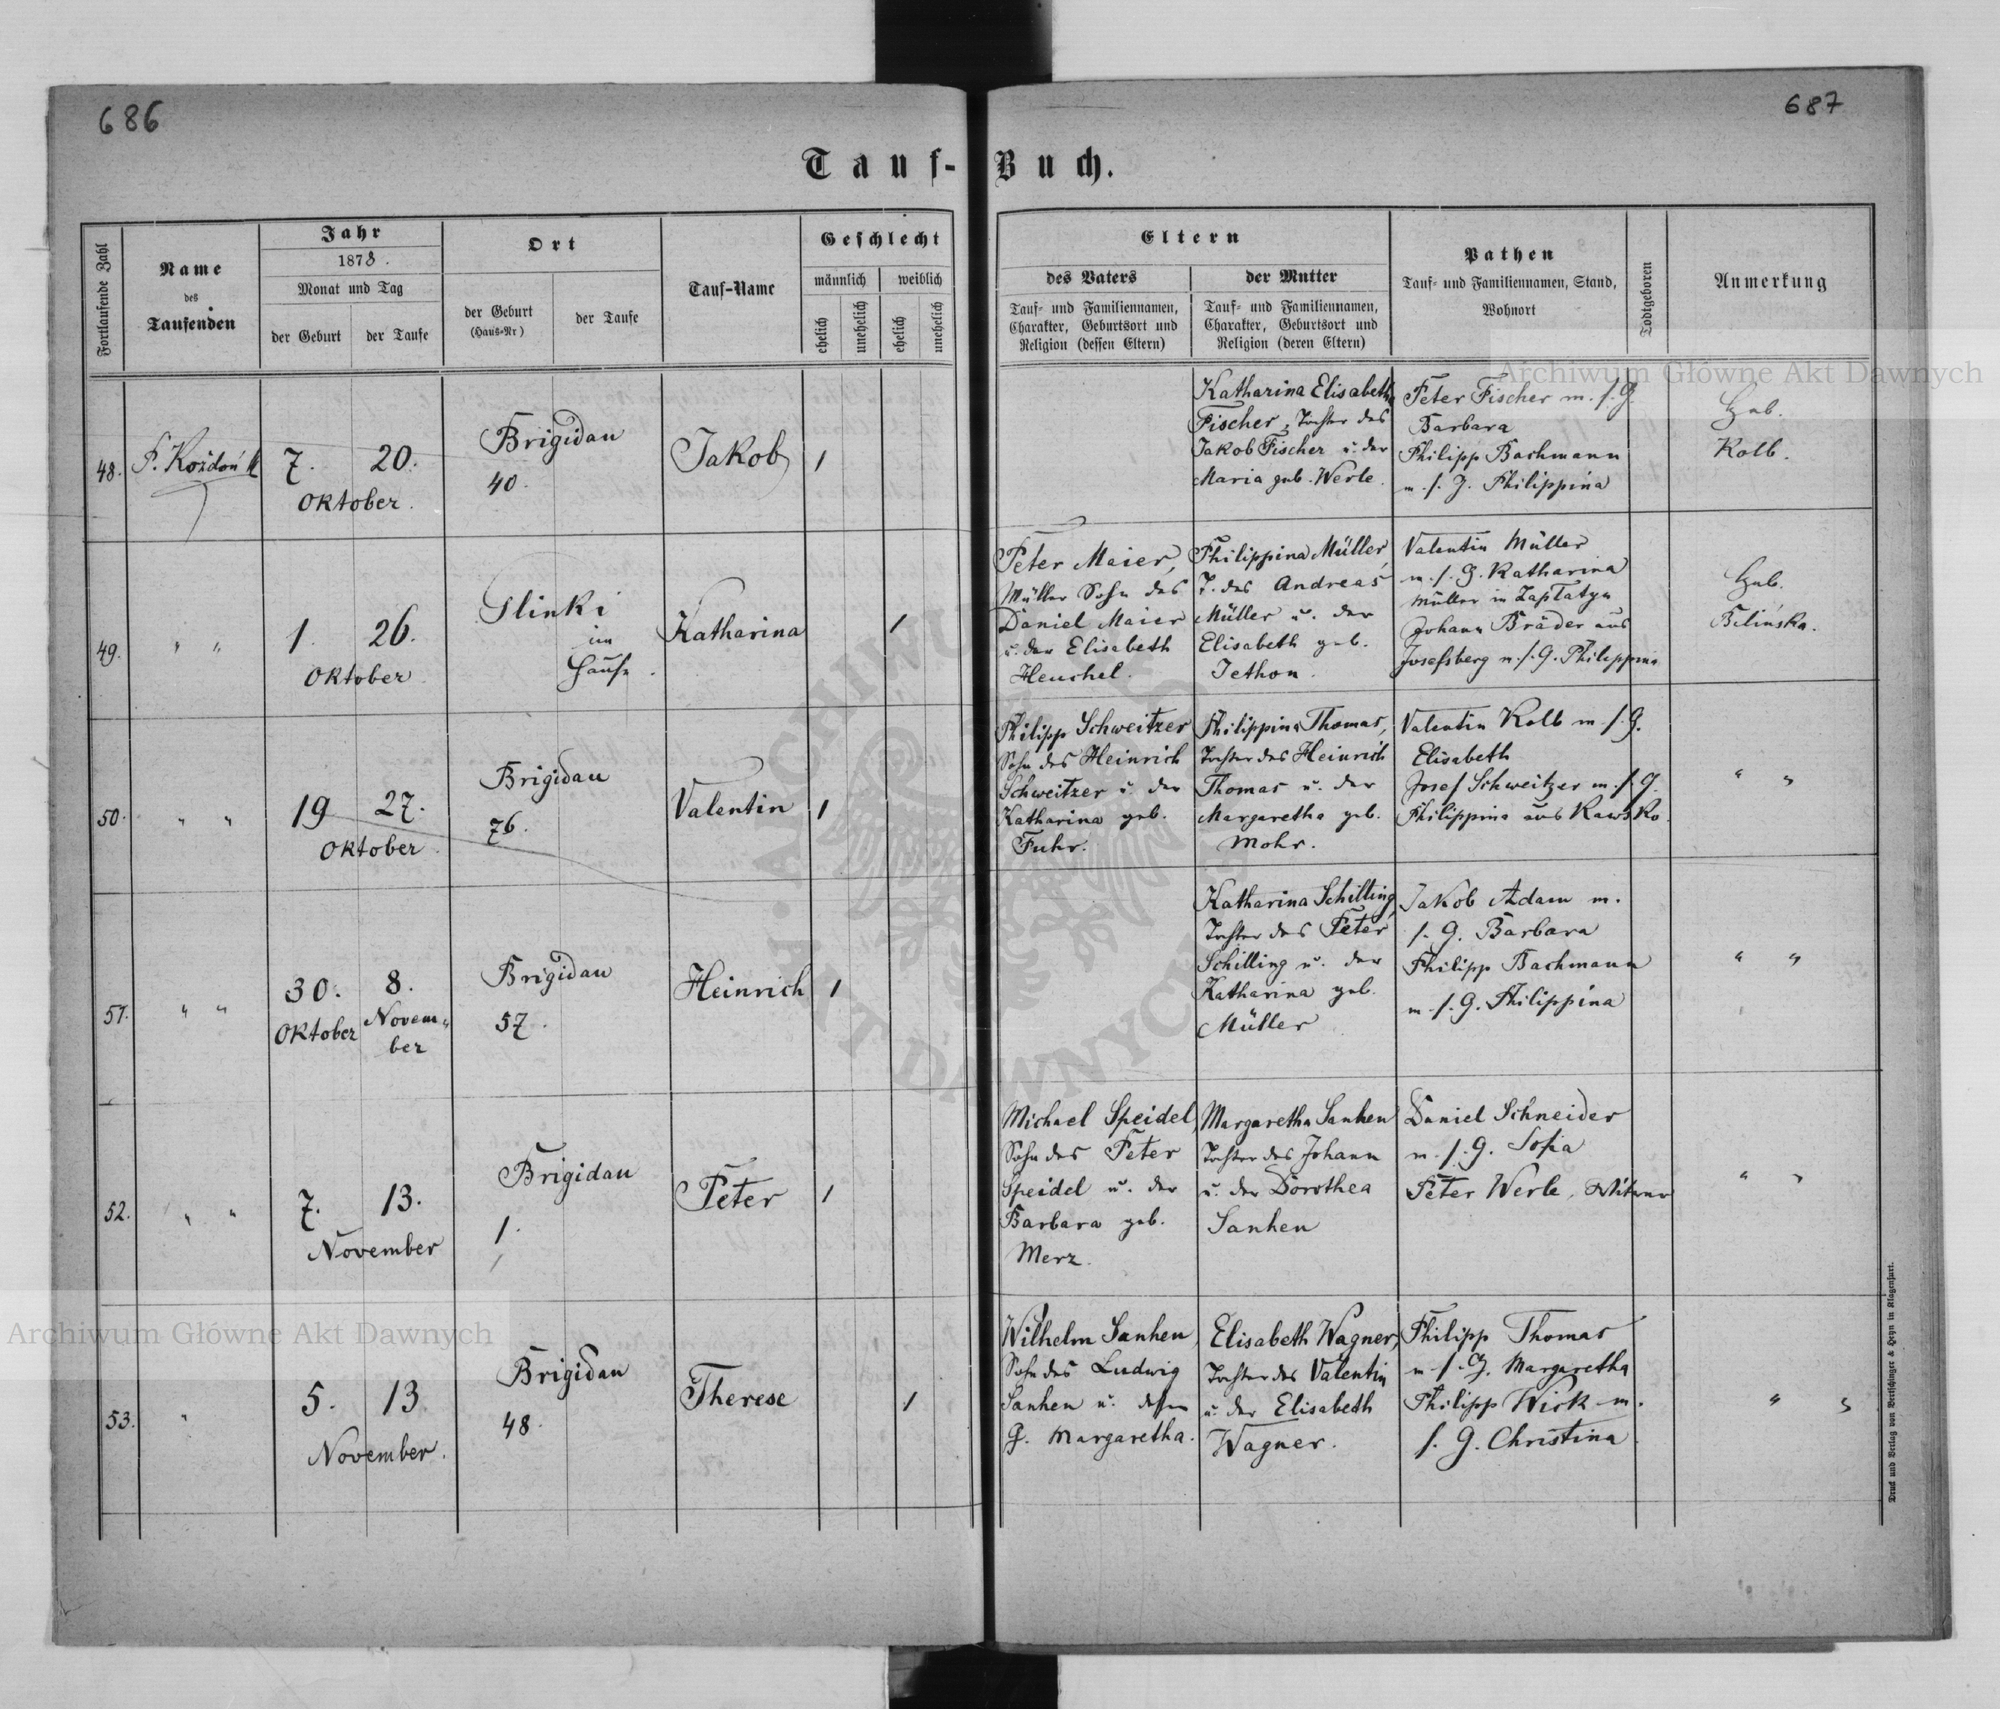 686
687
Tauf-Buch.
Fortlaufende Zahl
Name
des
Taufenden
Jahr
1878.
Monat und Tag
der Geburt
der Taufe
Ort
der Geburt
(Haus-Nr)
der Taufe
Tauf-Name
Geschlecht
männlich
weiblich
ehelich
unehelich
ehelich
unehelich
Eltern
des Vaters
Tauf- und Familiennamen,
Charakter, Geburtsort und
Religion (dessen Eltern)
der Mutter
Tauf- und Familiennamen,
Charakter, Geburtsort und
Religion (deren Eltern)
Pathen
Tauf- und Familiennamen, Stand,
Wohnort
Todtgeboren
Anmerkung
Archiwum Główne Akt Dawnych
48.
7.
20.
Oktober.
Brigidau
40.
Jakob
1
Katharina Elisabetha
Fischer, Tochter des
Jakob Fischer u. der
Maria geb. Werle.
Peter Fischer m. s. G.
Barbara
Philipp Bachmann
m. s. G. Philippina
Heb.
Kolb.
49.
" "
1.
26.
Oktober
Glinki
im
Hause.
Katharina
1
Peter Maier,
Müller Sohn des
Daniel Maier
u. der Elisabeth
Heuchel.
Philippina Müller,
T. des Andreas
Müller u. der
Elisabeth geb.
Jethon.
Valentin Müller
m. s. G. Katharina
Müller in Zaplatyn
Johann Bräder aus
Josefsberg m. s. G. Philippina
Heb.
Bilińska.
50.
" "
19
27.
Oktober.
Brigidau
76.
Valentin
1
Philipp Schweitzer
Sohn des Heinrich
Schweitzer u. der
Katharina geb.
Fuhr.
Philippina Thomas,
Tochter des Heinrich
Thomas u. der
Margaretha geb.
Mohr.
Valentin Kolb m. s. G.
Elisabeth
Josef Schweitzer m. s. G.
Philippina aus Rawsko.
" "
51.
" "
30.
8.
Oktober
Novem-
ber
Brigidau
57.
Heinrich
1
Katharina Schilling,
Tochter des Peter
Schilling u. der
Katharina geb.
Müller
Jakob Adam m.
s. G. Barbara
Philipp Bachmann
m. s. G. Philippina
" "
52.
" "
7.
13.
November
Brigidau
1.
Peter
1
Michael Speidel,
Sohn des Peter
Speidel u. der
Barbara geb.
Merz.
Margaretha Sanhen
Tochter des Johann
u. der Dorothea
Sanhen
Daniel Schneider
m. s. G. Sofia
Peter Werle, Witwer
" "
53.
"
5.
13.
November.
Brigidau
48.
Therese
1
Wilhelm Sanhen,
Sohn des Ludwig
Sanhen u. dessen
G. Margaretha.
Elisabeth Wagner,
Tochter des Valentin
u. der Elisabeth
Wagner.
Philipp Thomas
m. s. G. Margaretha
Philipp Wick m.
s. G. Christina.
" "
Archiwum Główne Akt Dawnych
Druck und Verlag von Bertschinger & Heyn in Klagenfurt.